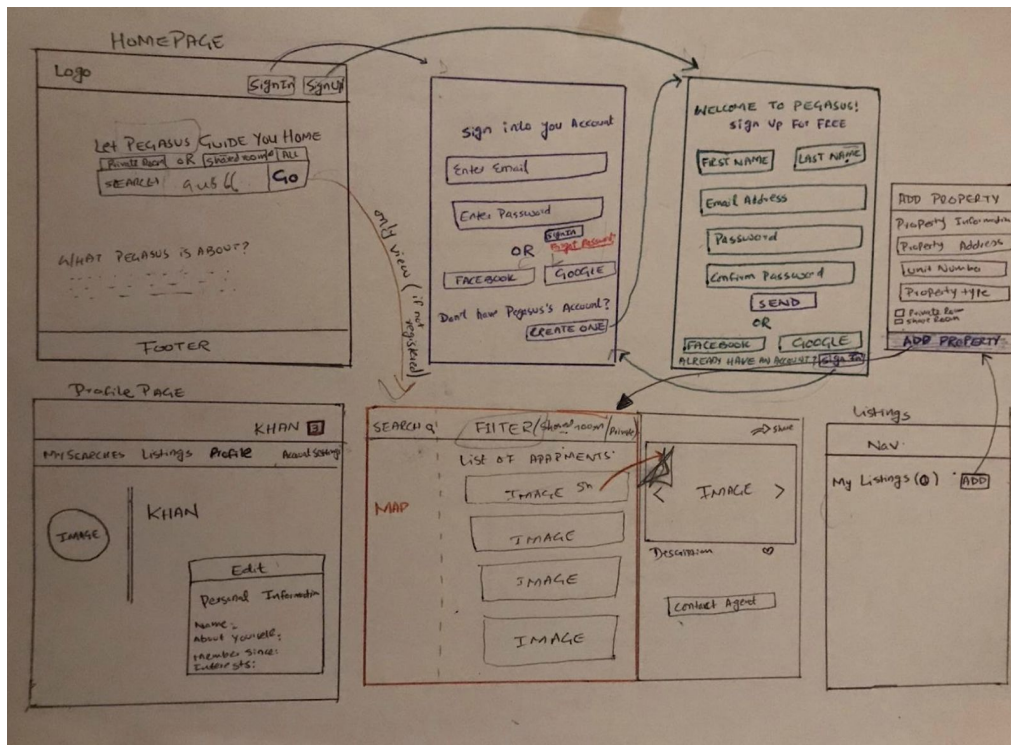 HOMEPAGE
Logo
SignIn
SignUp
Let PEGASUS GUIDE YOU HOME
Private Room OR Shared room ALL
SEARCH GO
WHAT PEGASUS IS ABOUT?
FOOTER
only view (if not registered)
Sign into you Account
Enter Email
Enter Password
SignIn
OR
FACEBOOK
GOOGLE
Don't have Pegasus's Account?
CREATE ONE
WELCOME TO PEGASUS!
Sign Up For FREE
FIRST NAME
LAST NAME
Email Address
Password
Confirm Password
SEND
OR
FACEBOOK
GOOGLE
ALREADY HAVE AN ACCOUNT? Sign In
ADD PROPERTY
Property Information
Property Address
Unit Number
Property type
Private Room
Share Room
ADD PROPERTY
Profile PAGE
KHAN
MY SEARCHES Listings Profile
KHAN
IMAGE
Edit
Personal Information
Name:
About Yourself:
Member Since:
Interests:
SEARCH
FILTER (Shared room / Private)
List OF
MAP
IMAGE
IMAGE
IMAGE
IMAGE
Share
< IMAGE >
Contact Agent
Listings
Nav.
My Listings (0) ADD